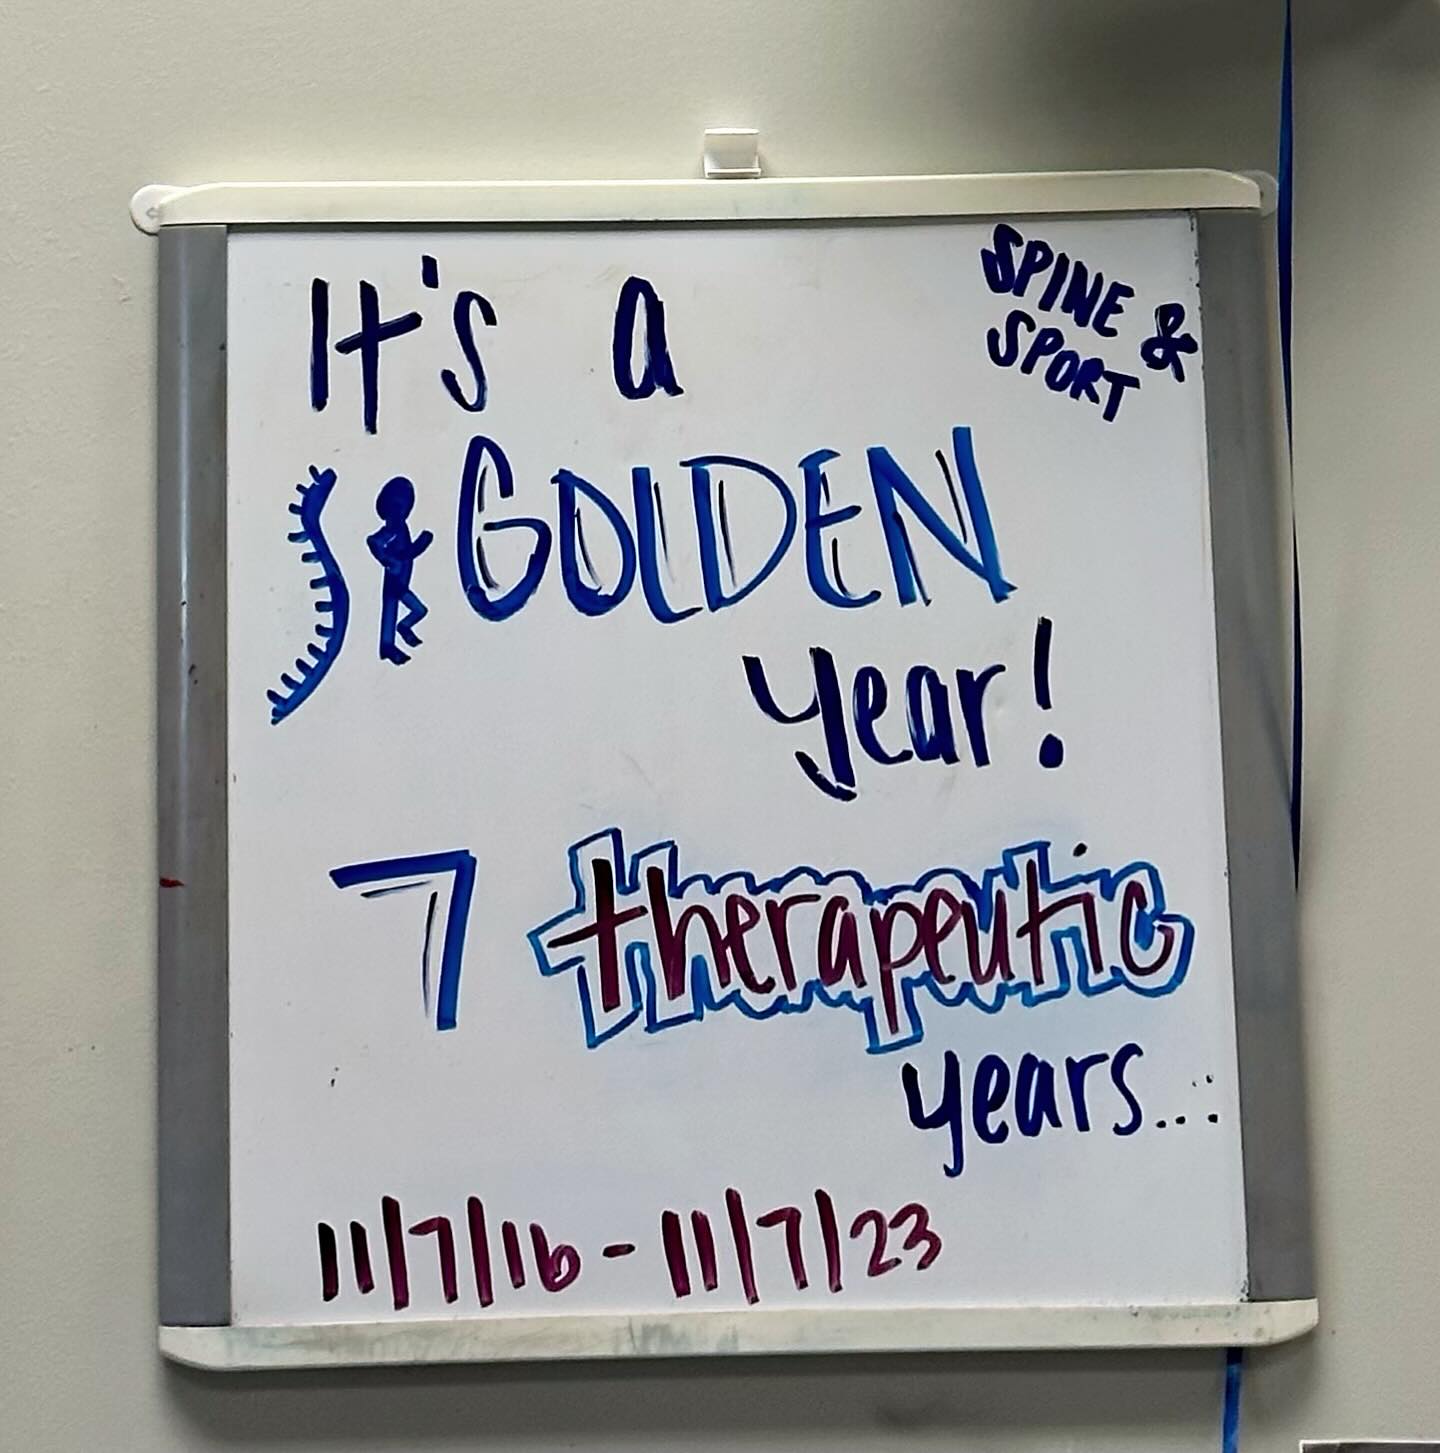 It's a
SPINE &
SPORT
GOLDEN
year!
7 therapeutic
years...
11/7/16-11/7/23